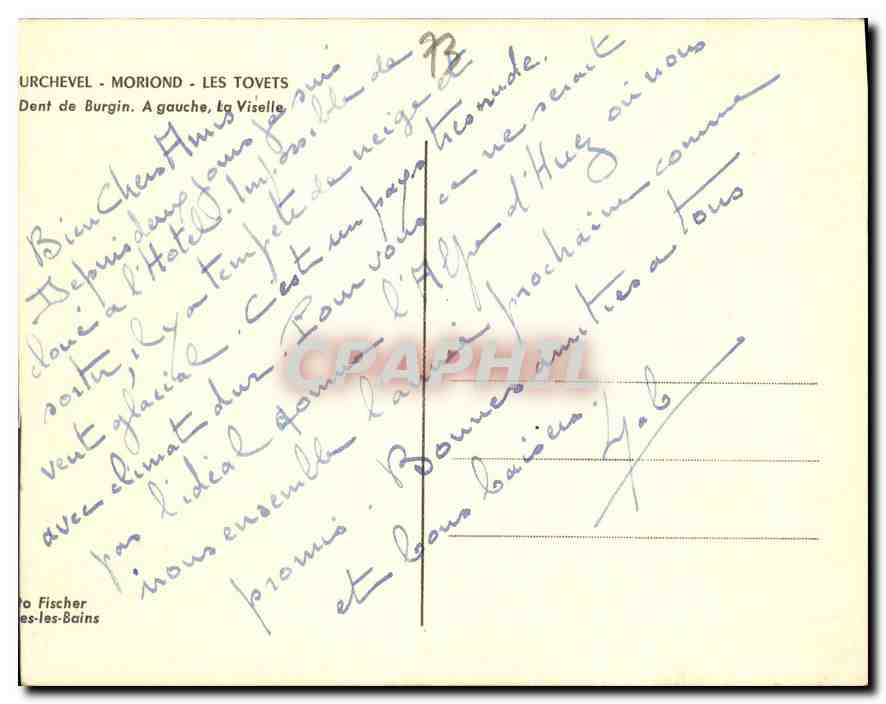 73
URCHEVEL - MORIOND - LES TOVETS
Dent de Burgin. A gauche, La Viselle
Bien Chers Amis
Depuis deux jours je suis
cloué a l'Hotel. Impossible de
sortir, il y a tempête de neige et
vent glacial. C'est un pays très rude.
avec climat dur. Pour vous ça ne serait
pas l'idéal comme l'Alpe d'Huez où nous
irons ensemble l'année prochaine comme
promis. Bonnes amitiés a tous
et bons baisers.
CPAPHIL
to Fischer
es-les-Bains